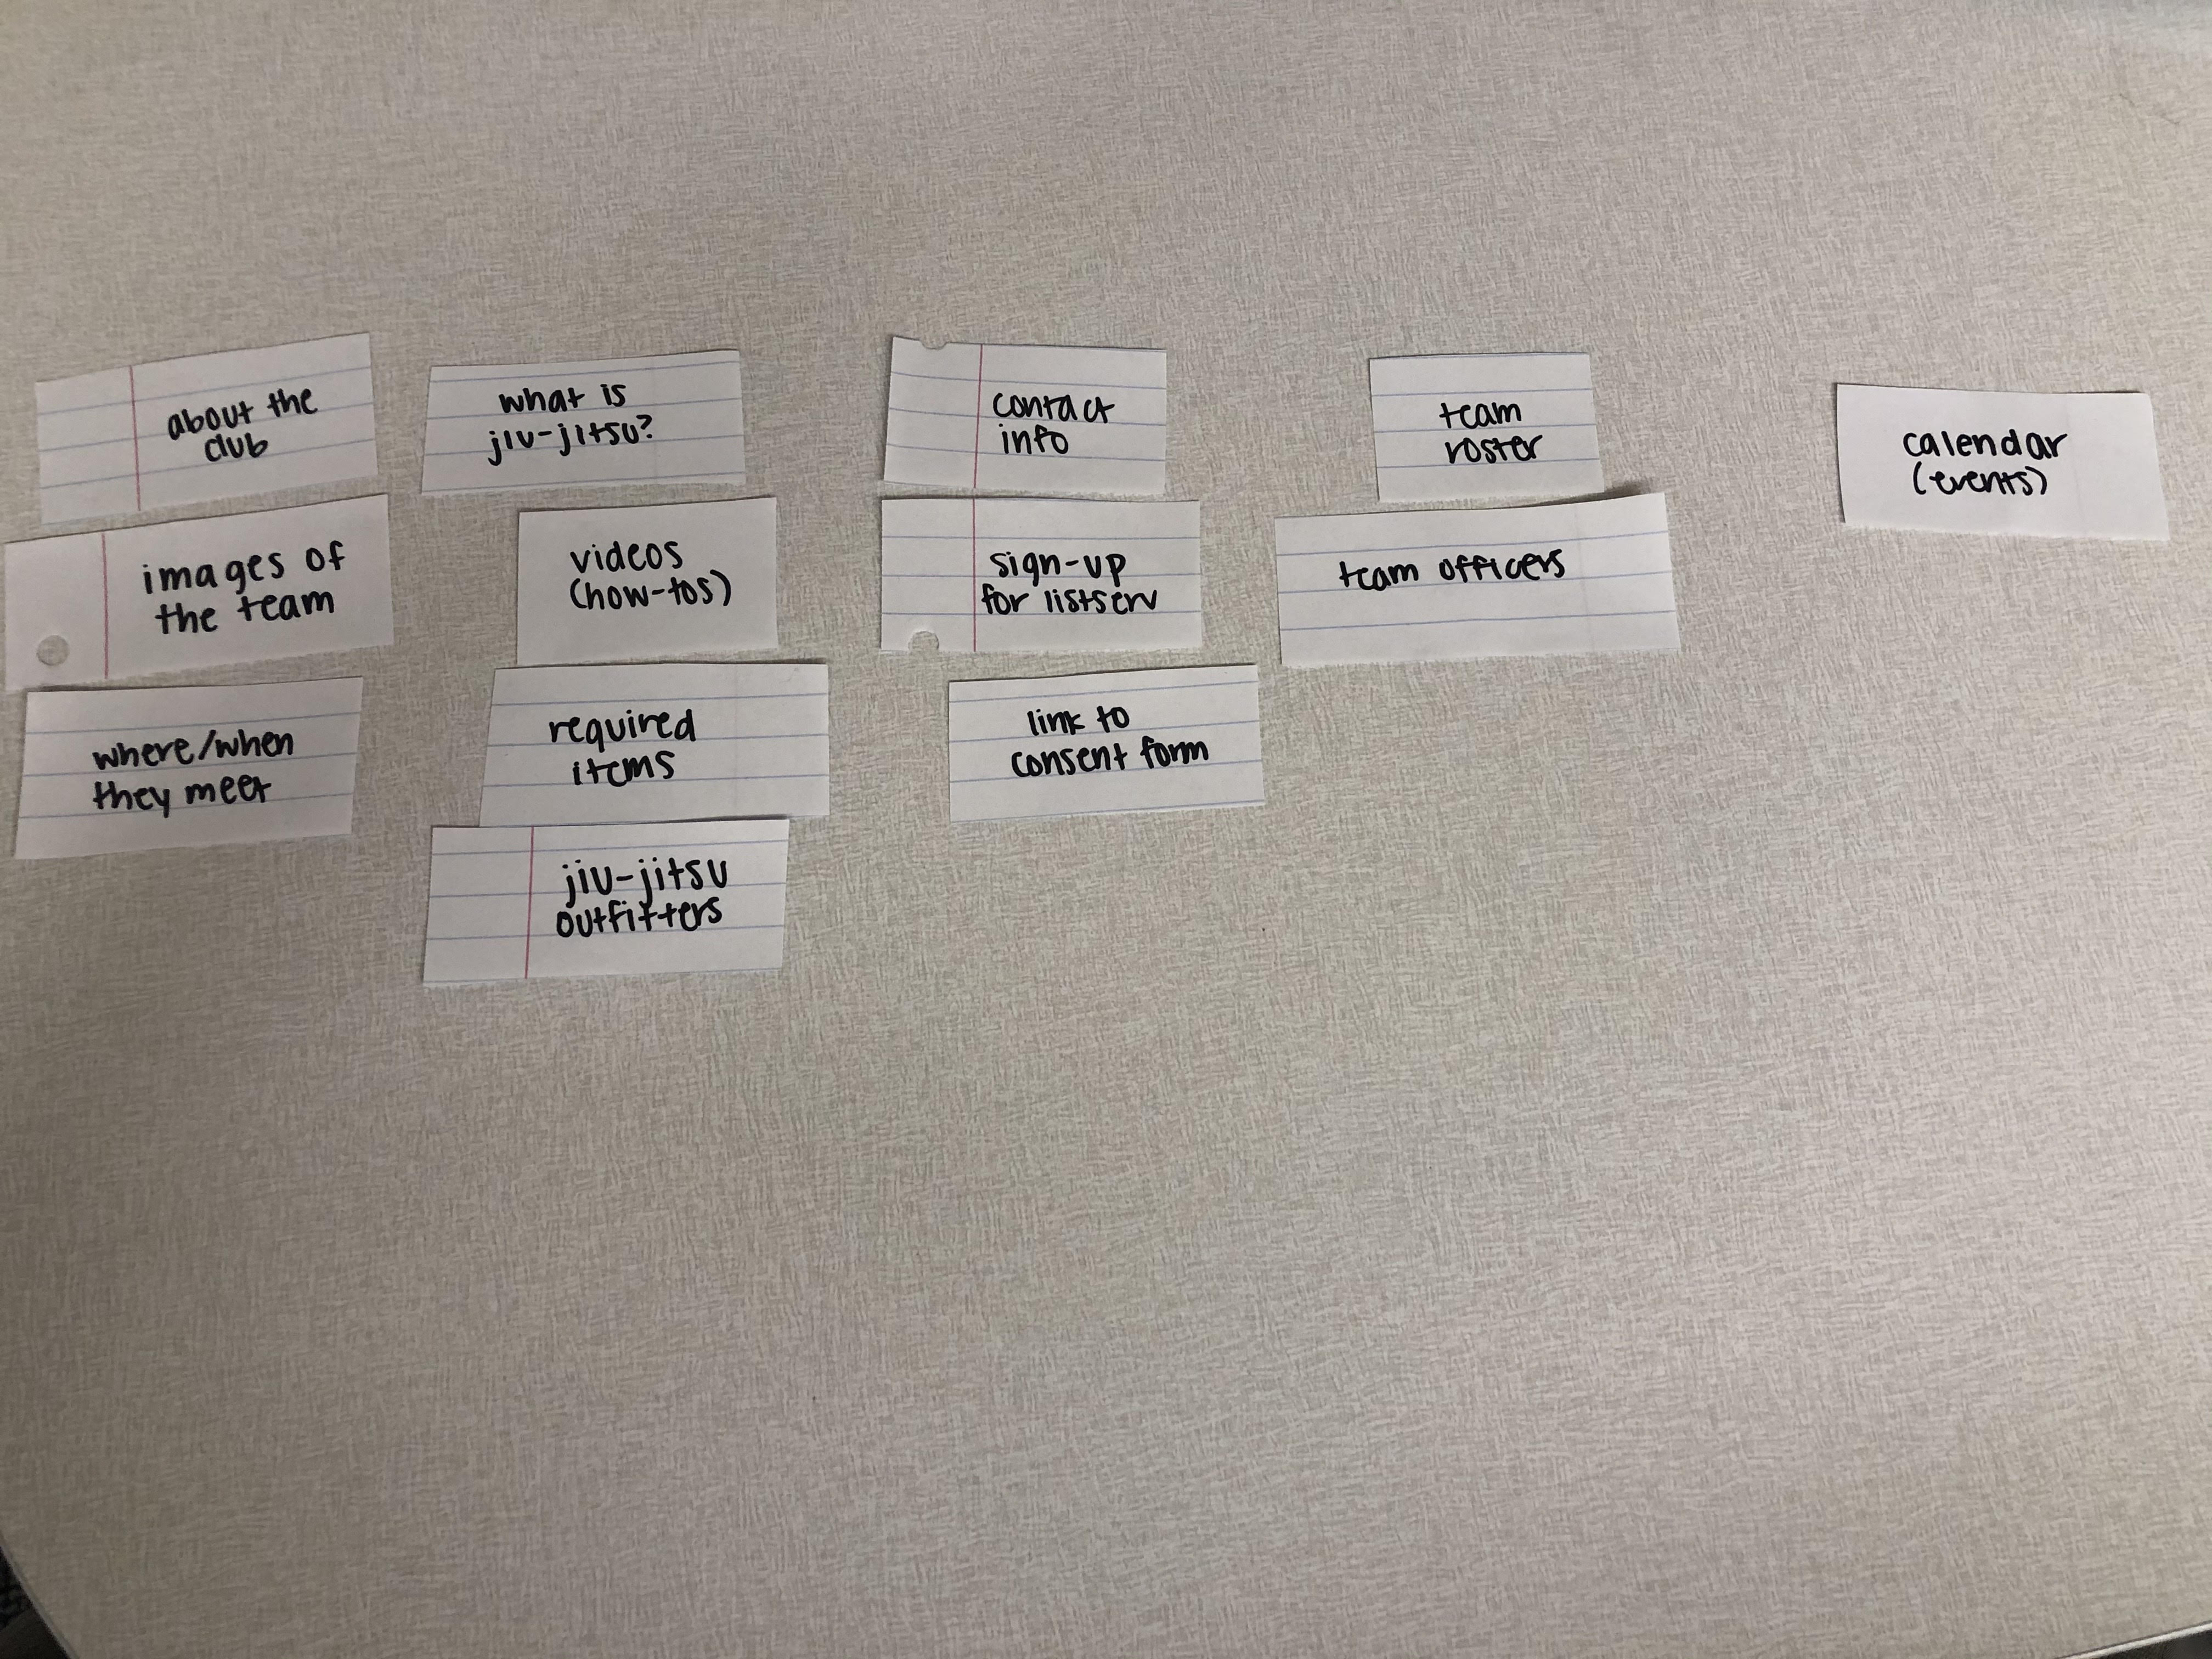 about the
club
images of
the team
where/when
they meet
what is
jiu-jitsu?
videos
(how-tos)
required
items
jiu-jitsu
outfitters
contact
info
sign-up
for listserv
link to
consent form
team
roster
team officers
calendar
(events)